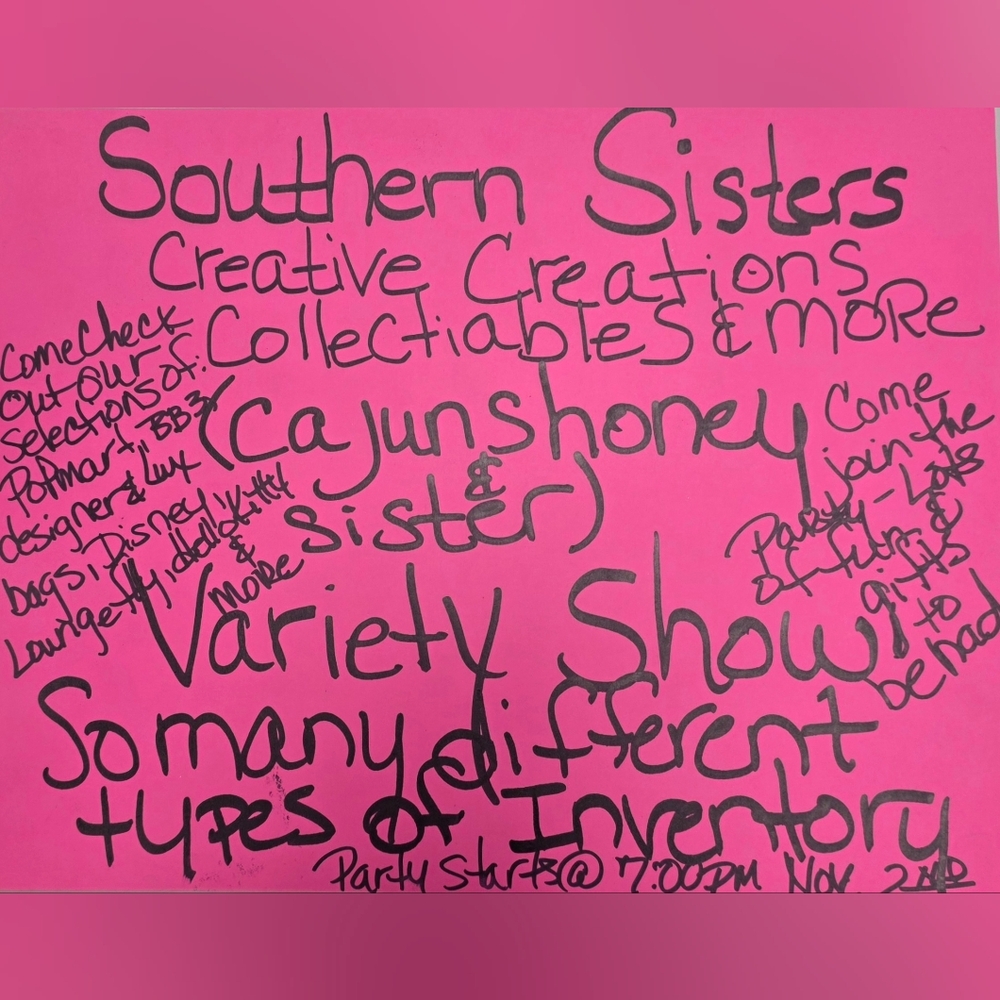 Southern Sisters
Creative Creations
Collectiables & MORe
(cajunshoney
&
sister)
Variety Show!
So many different
types of Inventory
Party Starts@ 7:00PM Nov 2ND
Come Check
Out Our
Selections of:
Popmart, BB3,
designer & Lux
bags, Disney,
Loungefly, Hello Kitty
&
MORe
Come
join the
Party - Lots
of fun &
gifts
to
be had